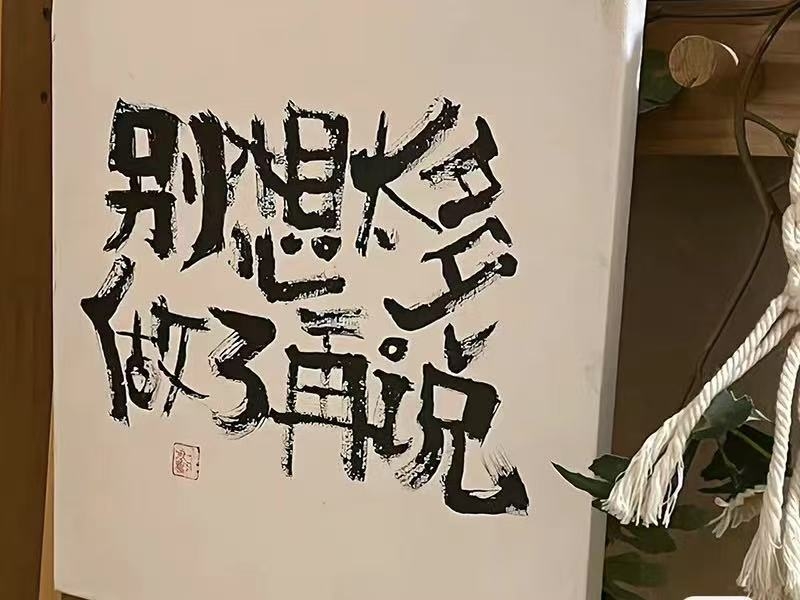 别想太多
做了再说